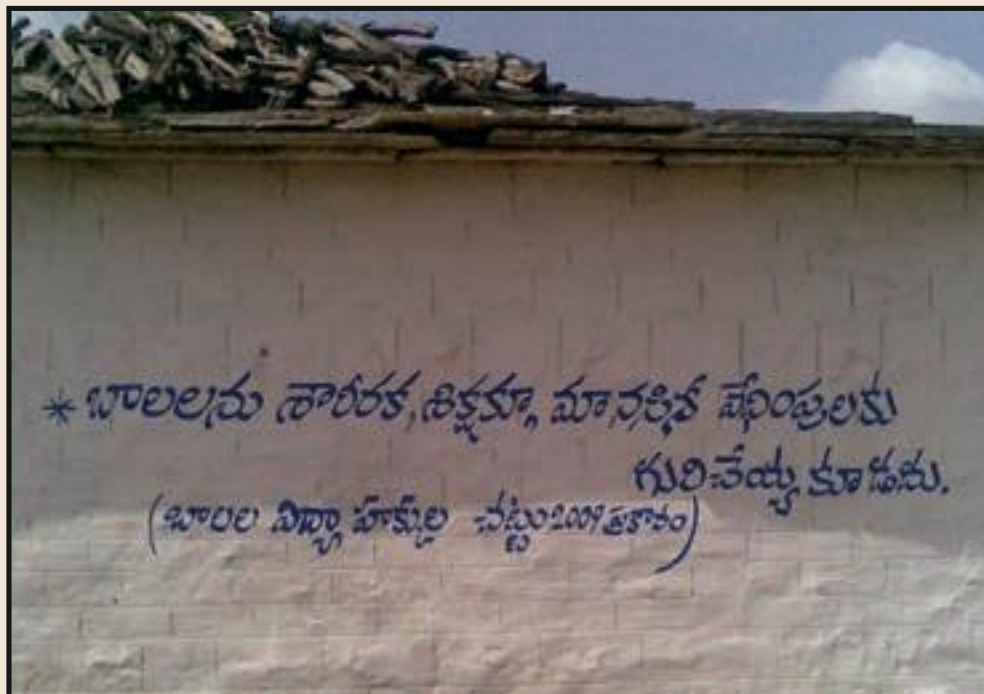 * బాలలను శారీరక, శిక్షకూ, మానసిక వేధింపులకు
గురిచేయ్య కూడదు.
(బాలల విద్యా హక్కుల చట్టు 2009 ప్రకారం)